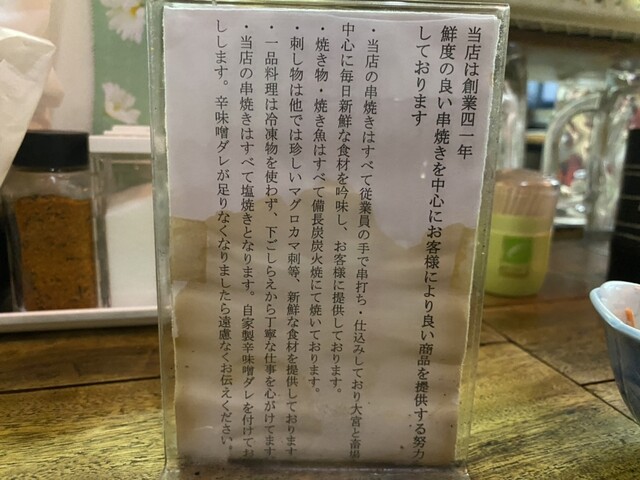 当店は創業四一年
鮮度の良い串焼きを中心にお客様により良い商品を提供する努力
しております
・当店の串焼きはすべて従業員の手で串打ち・仕込みしており大宮と
中心に毎日新鮮な食材を吟味し、お客様に提供しております。
・焼き物・焼き魚はすべて備長炭炭火焼にて焼いております。
・刺し物は他では珍しいマグロカマ刺等、新鮮な食材を提供しております
・一品料理は冷凍物を使わず、下ごしらえから丁寧な仕事を心がけてます。
・当店の串焼きはすべて塩焼きとなります。自家製辛味噌ダレを付けてお
しします。辛味噌ダレが足りなくなりましたら遠慮なくお伝えください。